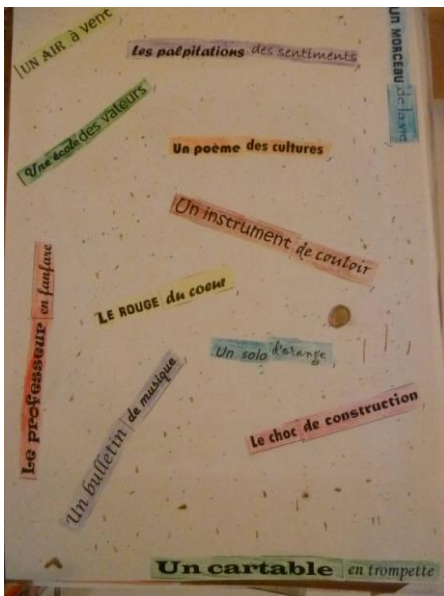 UN AIR à vent
Les palpitations des sentiments
un MORCEAU de la vie
Une école des valeurs
Un poème des cultures,
Un instrument de couloir,
LE ROUGE du coeur,
Le professeur en fanfare
Un solo d'orange,
Un bulletin de musique,
Le choc de construction,
Un cartable en trompette